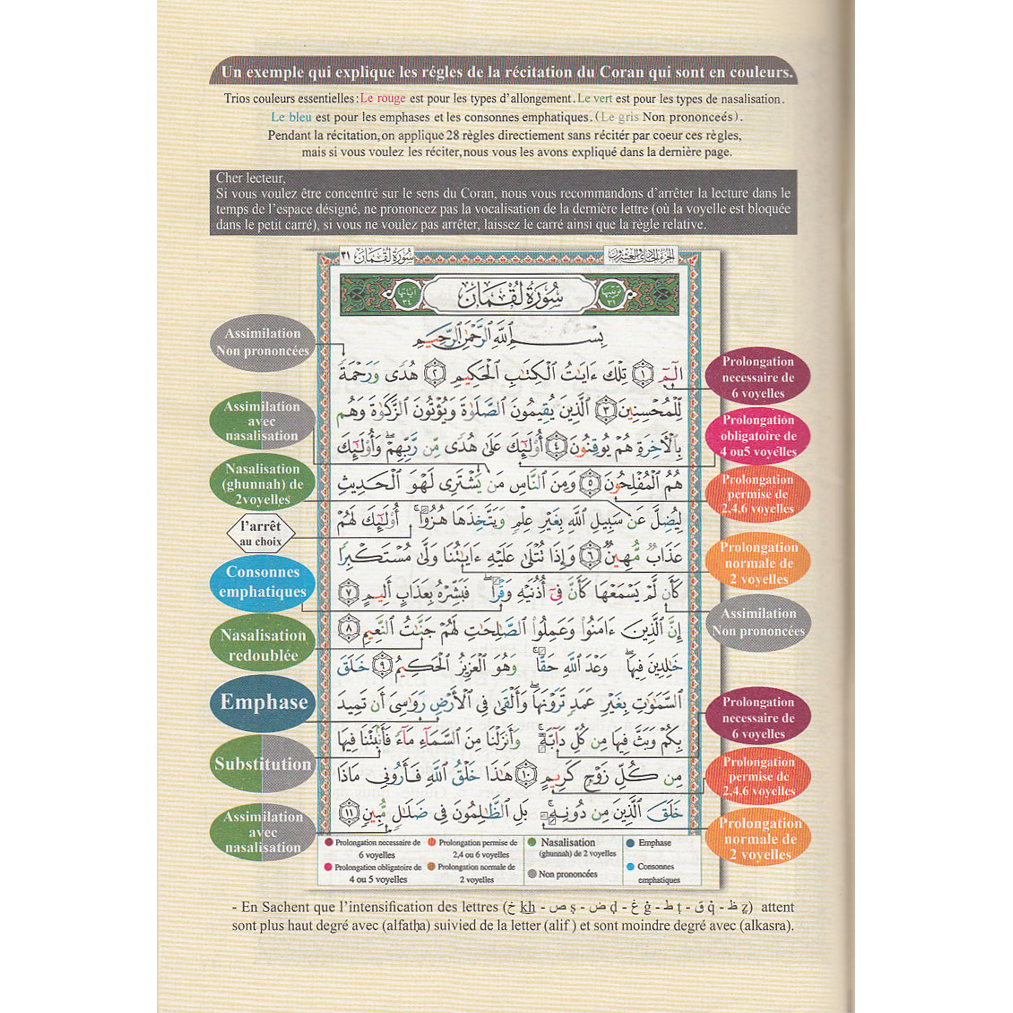 Un exemple qui explique les régles de la récitation du Coran qui sont en couleurs.
Trios couleurs essentielles:Le rouge est pour les types d’allongement.Le vert est pour les types de nasalisation.
Le bleu est pour les emphases et les consonnes emphatiques.(Le gris Non prononceés).
Pendant la récitation,on applique 28 règles directiement sans récité​r par coeur ces règles,
mais si vous voulez les réciter,nous vous les avons expliqué dans la dernière page.
Cher lecteur,
Si vous voulez être concentré sur le sens du Coran, nous vous recommandons d’arrêter la lecture dans le
temps de l’espace désigné, ne prononcez pas la vocalisation de la dernière lettre (où la voyelle est bloquée
dans le petit carré), si vous ne voulez pas arrêter, laissez le carré ainsi que la règle relative.
الجزء الحادي والعشرون
سورة لقمان ٣١
ترتيبها ٣١
سُورَةُ لُقۡمَان
آياتها ٣٤
بِسۡمِ ٱللَّهِ ٱلرَّحۡمَٰنِ ٱلرَّحِيمِ
الٓمٓ ١ تِلۡكَ ءَايَٰتُ ٱلۡكِتَٰبِ ٱلۡحَكِيمِ ٢ هُدٗى وَرَحۡمَةٗ
لِّلۡمُحۡسِنِينَ ٣ ٱلَّذِينَ يُقِيمُونَ ٱلصَّلَوٰةَ وَيُؤۡتُونَ ٱلزَّكَوٰةَ وَهُم
بِٱلۡأٓخِرَةِ هُمۡ يُوقِنُونَ ٤ أُوْلَٰٓئِكَ عَلَىٰ هُدٗى مِّن رَّبِّهِمۡۖ وَأُوْلَٰٓئِكَ
هُمُ ٱلۡمُفۡلِحُونَ ٥ وَمِنَ ٱلنَّاسِ مَن يَشۡتَرِي لَهۡوَ ٱلۡحَدِيثِ
لِيُضِلَّ عَن سَبِيلِ ٱللَّهِ بِغَيۡرِ عِلۡمٖ وَيَتَّخِذَهَا هُزُوًاۚ أُوْلَٰٓئِكَ لَهُمۡ
عَذَابٞ مُّهِينٞ ٦ وَإِذَا تُتۡلَىٰ عَلَيۡهِ ءَايَٰتُنَا وَلَّىٰ مُسۡتَكۡبِرٗا
كَأَن لَّمۡ يَسۡمَعۡهَا كَأَنَّ فِيٓ أُذُنَيۡهِ وَقۡرٗاۖ فَبَشِّرۡهُ بِعَذَابٍ أَلِيمٍ ٧
إِنَّ ٱلَّذِينَ ءَامَنُواْ وَعَمِلُواْ ٱلصَّٰلِحَٰتِ لَهُمۡ جَنَّٰتُ ٱلنَّعِيمِ ٨
خَٰلِدِينَ فِيهَاۖ وَعۡدَ ٱللَّهِ حَقّٗاۚ وَهُوَ ٱلۡعَزِيزُ ٱلۡحَكِيمُ ٩ خَلَقَ
ٱلسَّمَٰوَٰتِ بِغَيۡرِ عَمَدٖ تَرَوۡنَهَاۖ وَأَلۡقَىٰ فِي ٱلۡأَرۡضِ رَوَٰسِيَ أَن تَمِيدَ
بِكُمۡ وَبَثَّ فِيهَا مِن كُلِّ دَآبَّةٖۚ وَأَنزَلۡنَا مِنَ ٱلسَّمَآءِ مَآءٗ فَأَنۢبَتۡنَا فِيهَا
مِن كُلِّ زَوۡجٖ كَرِيمٍ ١٠ هَٰذَا خَلۡقُ ٱللَّهِ فَأَرُونِي مَاذَا
خَلَقَ ٱلَّذِينَ مِن دُونِهِۦۚ بَلِ ٱلظَّٰلِمُونَ فِي ضَلَٰلٖ مُّبِينٖ ١١
Assimilation
Non prononcées
Assimilation
avec
nasalisation
Nasalisation
(ghunnah) de
2voyelles
l’arrêt
au choix
Consonnes
emphatiques
Nasalisation
redoublée
Emphase
Substitution
Assimilation
avec
nasalisation
Prolongation
necessaire de
6 voyelles
Prolongation
obligatoire de
4 ou5 voyélles
Prolongation
permise de
2,4,6 voyelles
Prolongation
normale de
2 voyelles
Assimilation
Non prononcées
Prolongation
necessaire de
6 voyelles
Prolongation
permise de
2,4,6 voyelles
Prolongation
normale de
2 voyelles
Prolongation necessaire de
6 voyelles
Prolongation permise de
2,4 ou 6 voyelles
Nasalisation
(ghunnah) de 2 voyelles
Emphase
Prolongation obligatoire de
4 ou 5 voyelles
Prolongation normale de
2 voyelles
Non prononcées
Consonnes
emphatiques
- En Sachent que l’intensification des lettres (خ kh - ص ṣ - ض ḍ - غ ġ - ط ṭ - ق q̇ - ظ ẓ) attent
sont plus haut degré avec (alfatḥa) suivied de la letter (alif ) et sont moindre degré avec (alkasra).